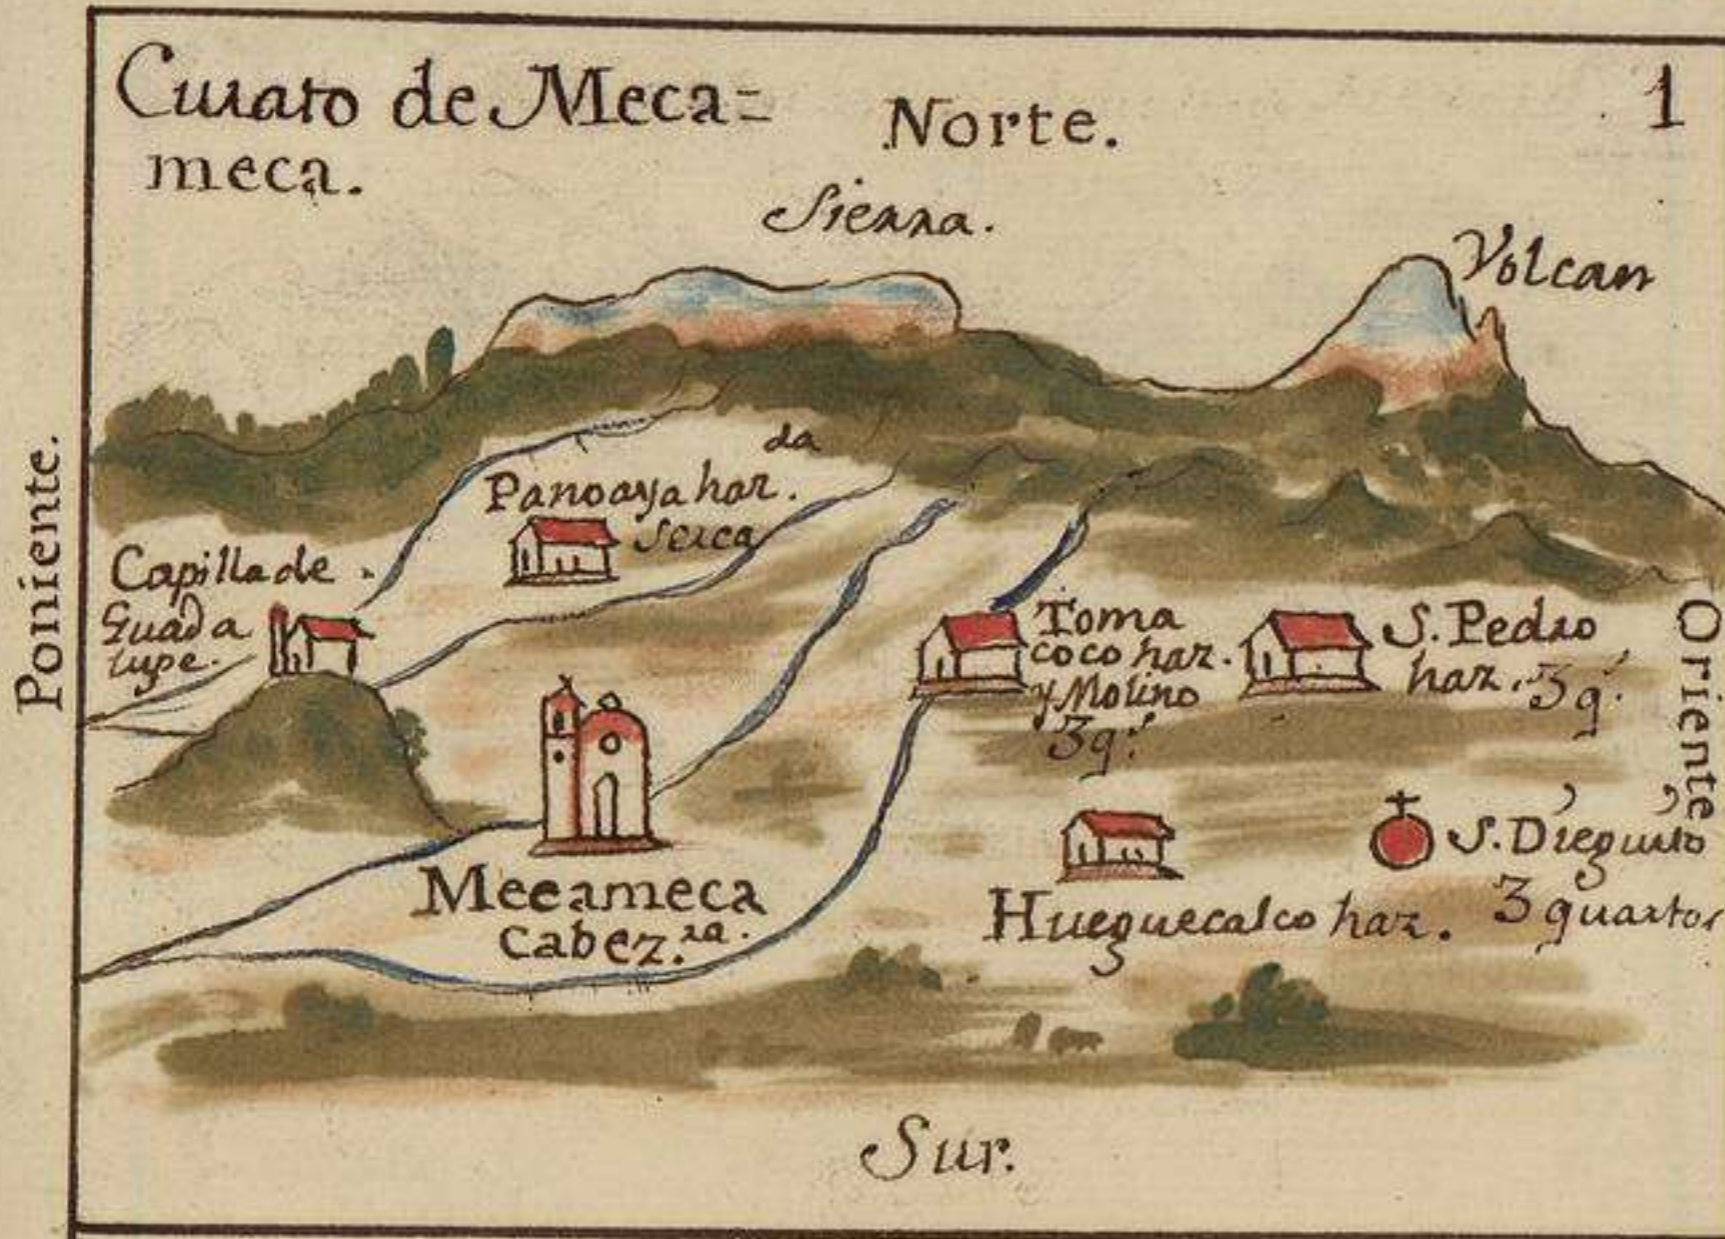 Curato de Meca=
meca.
Norte.
1
Sierra.
Volcan
Poniente.
Panoaya haz.da
serca
Capilla de
Guada
lupe.
Toma
coco haz.
y Molino
3 q.s
S. Pedro
haz. 3 q.s
Oriente
Meeameca
Cabez.ra.
Hueguecalco haz.
S. Dieguito
3 quartos
Sur.